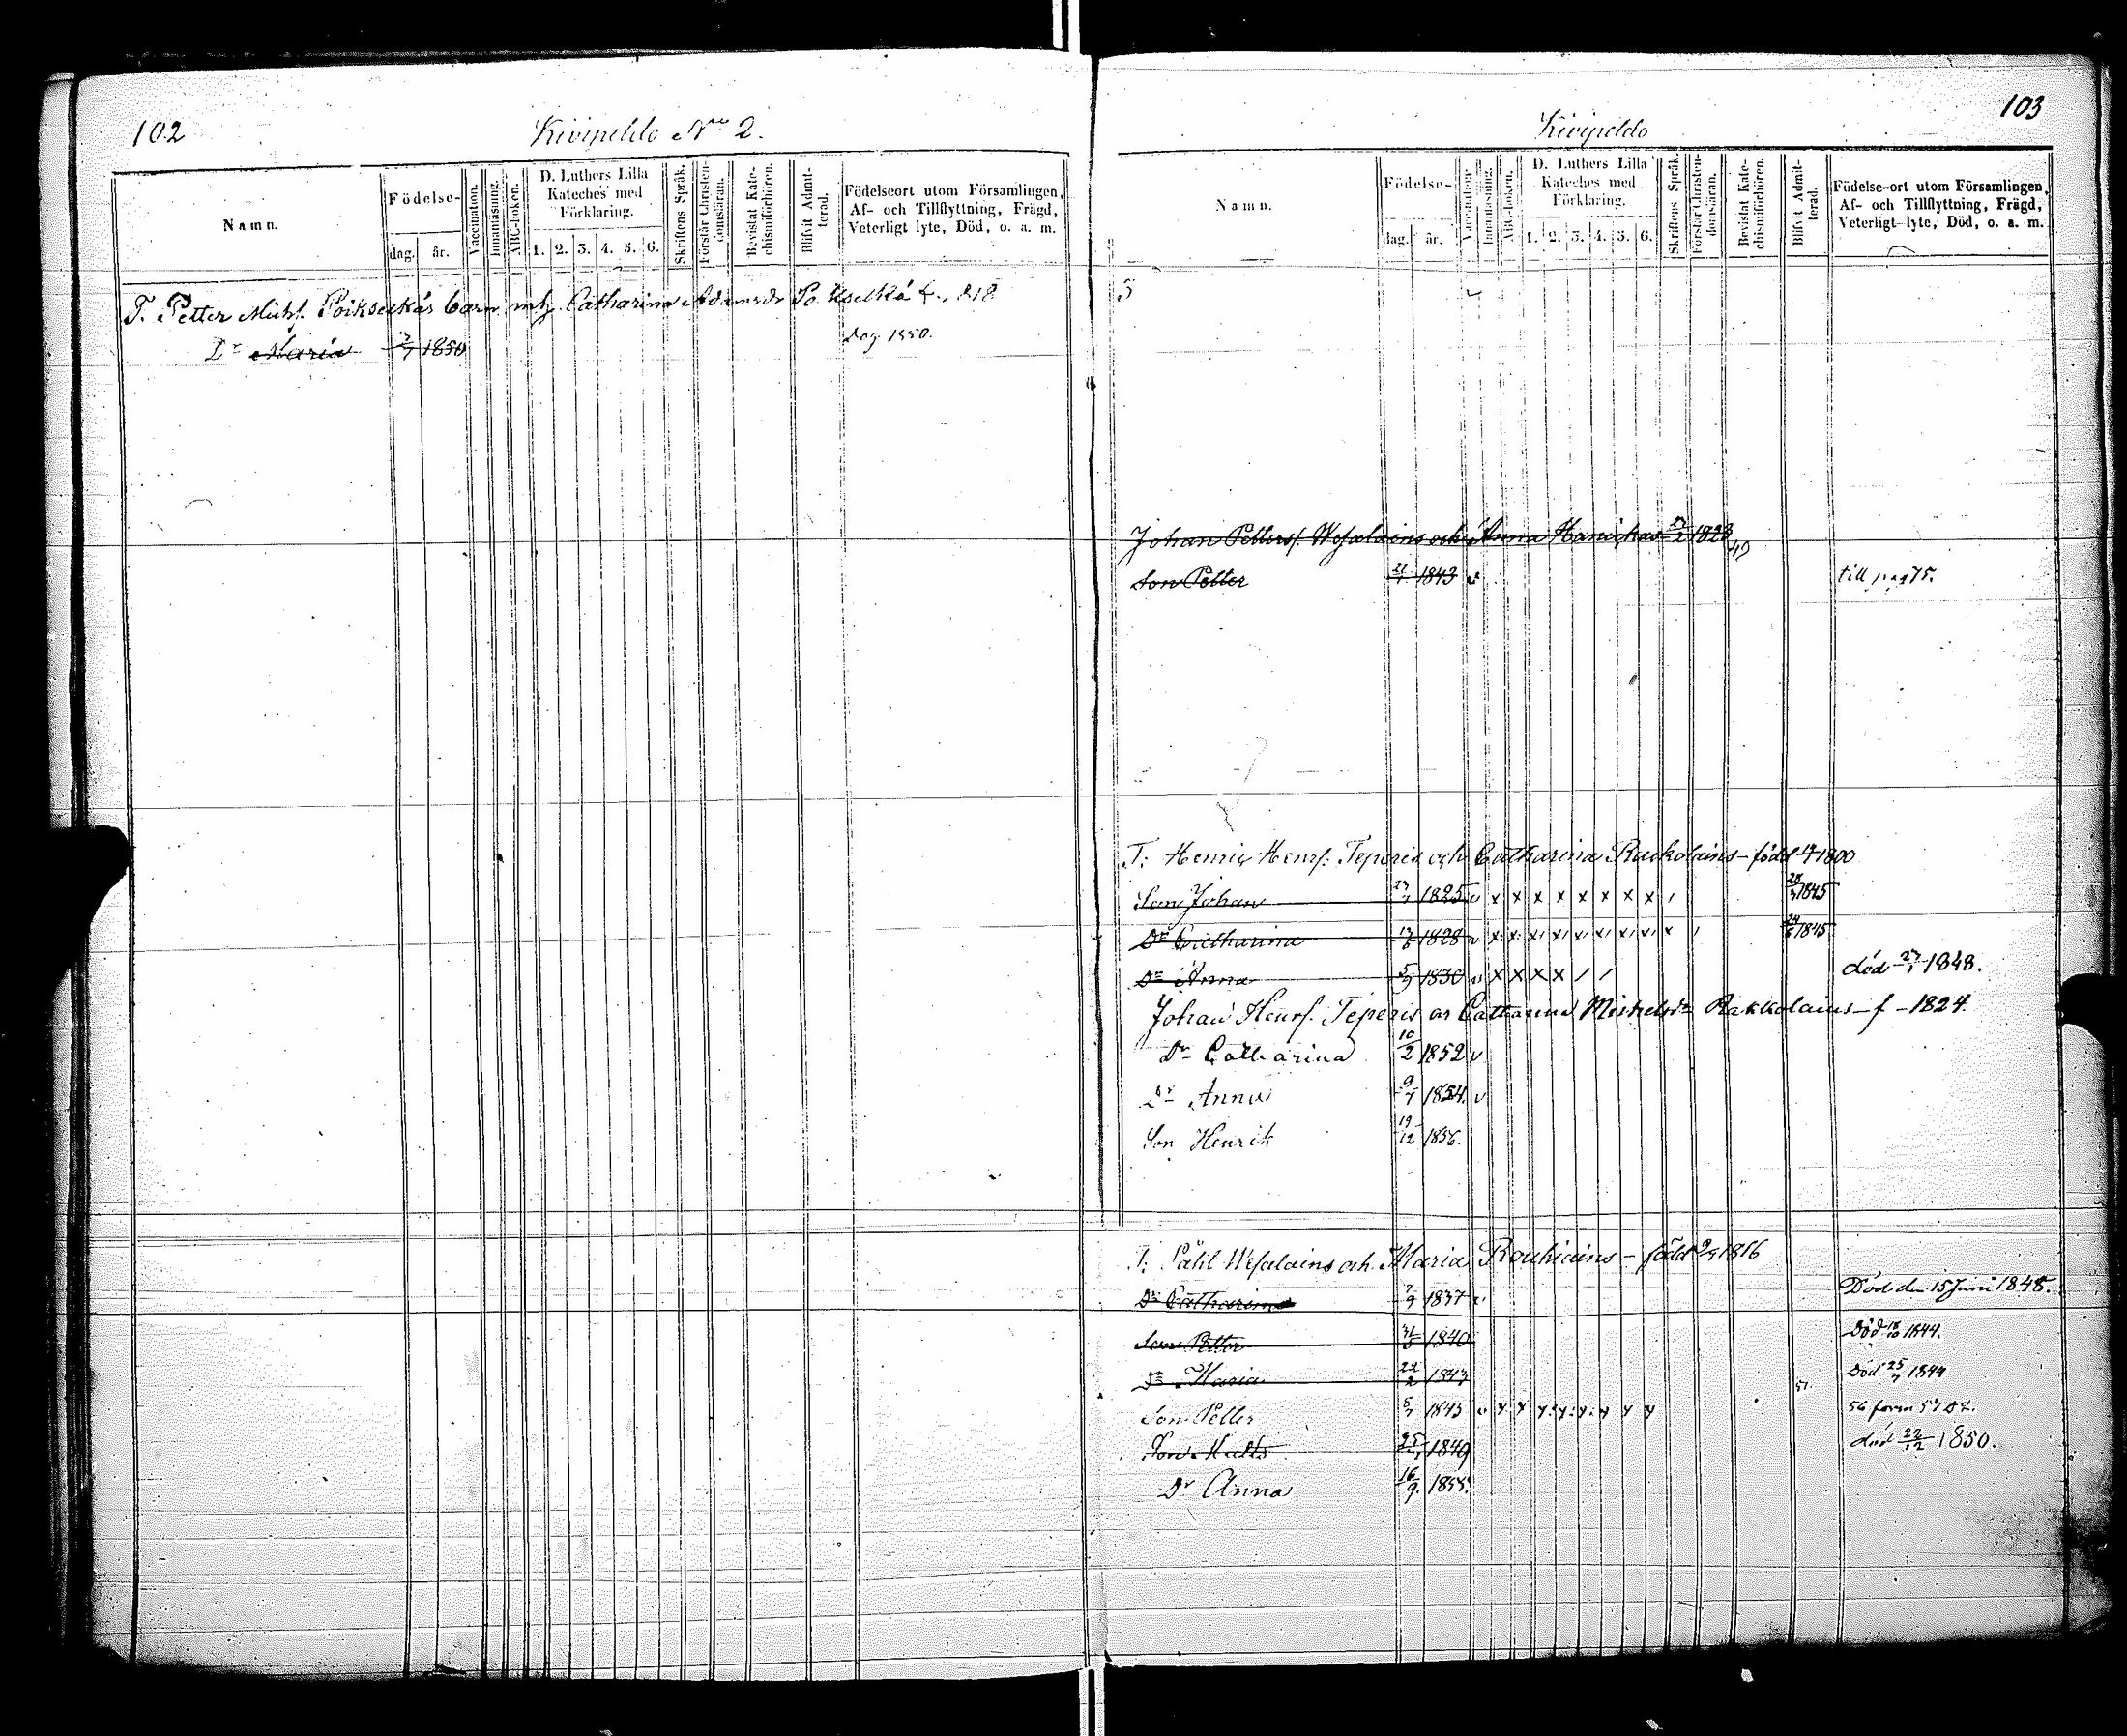 102
Kivipeldo No 2.
Namn.
Födelse-
dag.
år.
Vaccination.
Innanläsning.
ABC-boken.
D. Luthers Lilla Kateches med Förklaring.
1. 2. 3. 4. 5. 6.
Skriftens Språk.
Förstår Christendomsläran.
Bevistat Katechismiförhören.
Blifvit Admitterad.
Födelseort utom Församlingen, Af- och Tillflyttning, Frägd, Veterligt lyte, Död, o. a. m.
T. Petter Michs. barn m. Catharina Adamsdr f. 1818
Dr Maria 1850
1850.
103
Kivipeldo
Namn.
Födelse-
dag. år.
Vaccination.
Innanläsning.
ABC-boken.
D. Luthers Lilla Kateches med Förklaring.
1. 2. 3. 4. 5. 6.
Skriftens Språk.
Förstår Christendomsläran.
Bevistat Katechismiförhören.
Blifvit Admitterad.
Födelse-ort utom Församlingen, Af- och Tillflyttning, Frägd, Veterligt lyte, Död, o. a. m.
Johan Petters. Wesalains och Anna 1823
Son Petter 21/1 1843 v till pag 75.
T: Henric Henrs. Teperis och Catharina Ruokolains - född 1800
Son Johan 1825 v x x x x x x x x 1845
Dr Catharina 1828 v x x x x x x x x x 1845
Dr Anna 5/9 1830 v x x x x / / död 27/1 1848.
Johan Henrs. Teperis o. Catharina Michelsdr Rakkolains - f - 1824.
Dr Catharina 10/2 1852 v
Dr Anna 9/7 1854. v
Son Henrik 19/12 1856.
T: Påhl Wesalains och Maria Rouhiains - född 1816
Dr Catharina 7/9 1837 v Död den 15 Juni 1848.
Son Petter 31/3 1840 Död 18/10 1844.
Dr Maria 22/2 1843 Död 25/7 1844
Son Petter 5/7 1845 v
Son Matts 25/1 1849 död 22/12 1850.
Dr Anna 16/9. 1855.